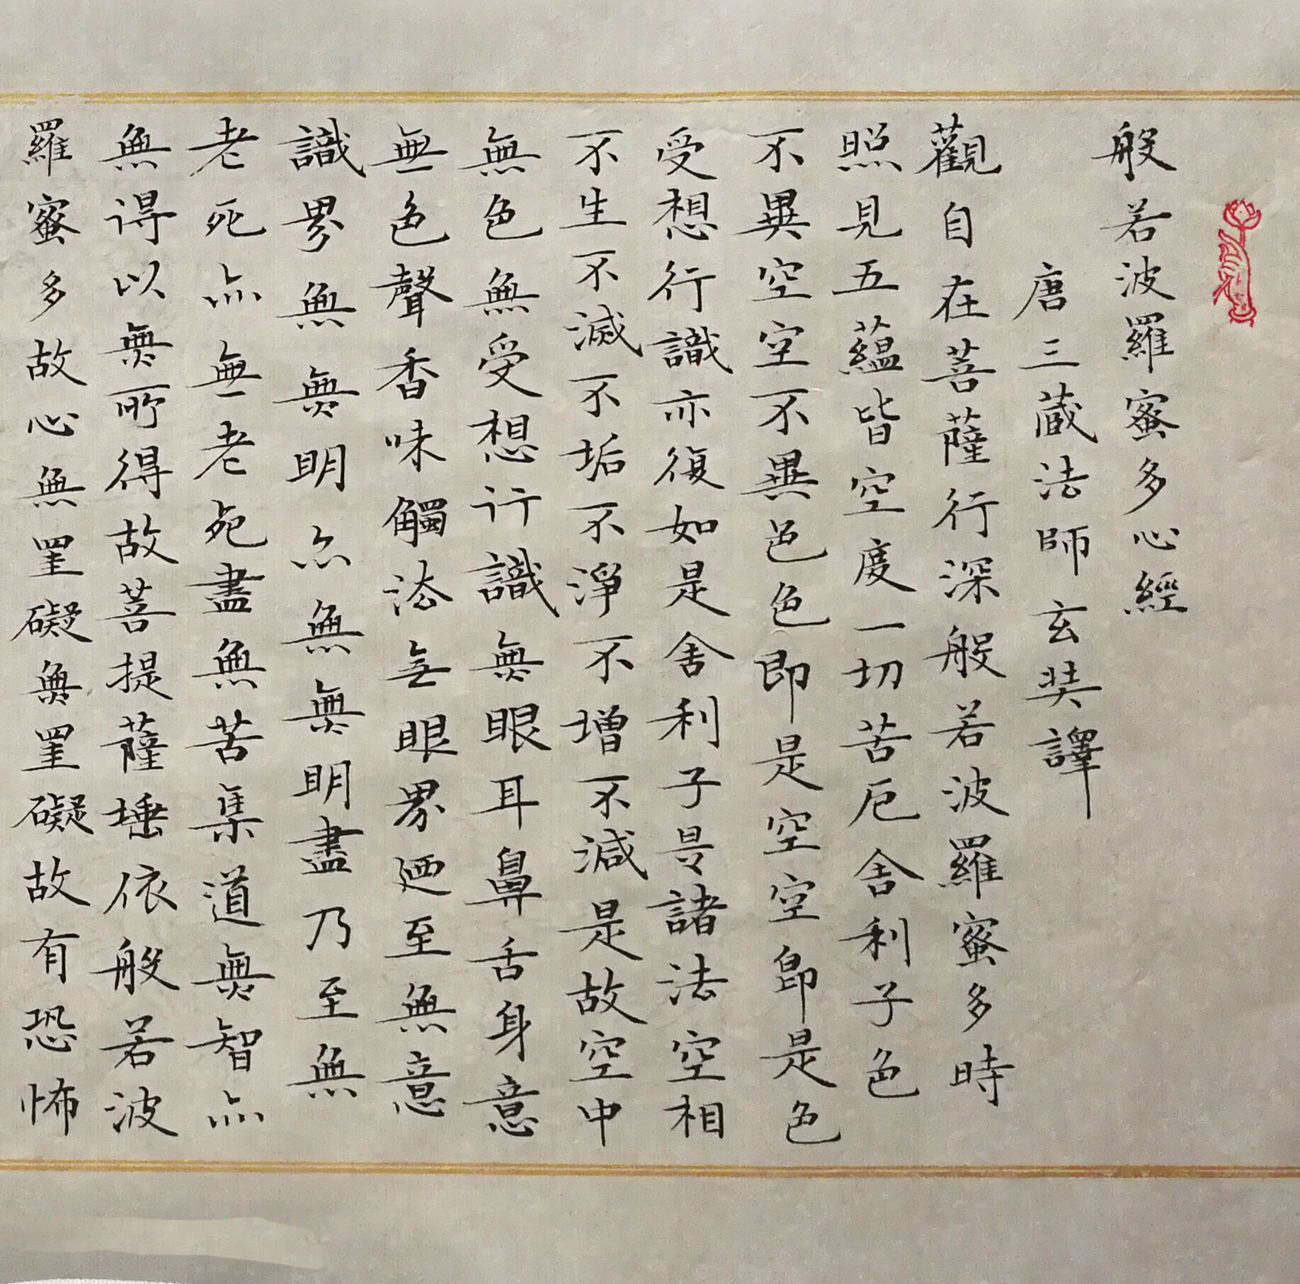 般若波羅蜜多心經
唐三蔵法師玄奘譯
觀自在菩薩行深般若波羅蜜多時
照見五蘊皆空度一切苦厄舍利子色
不異空空不異色色即是空空即是色
受想行識亦復如是舍利子是諸法空相
不生不滅不垢不淨不增不減是故空中
無色無受想行識無眼耳鼻舌身意
無色聲香味觸法无眼界迺至無意
識界無無明亦無無明盡乃至無
老死亦無老死盡無苦集道無智亦
無得以無所得故菩提薩埵依般若波
羅蜜多故心無罣礙無罣礙故有恐怖